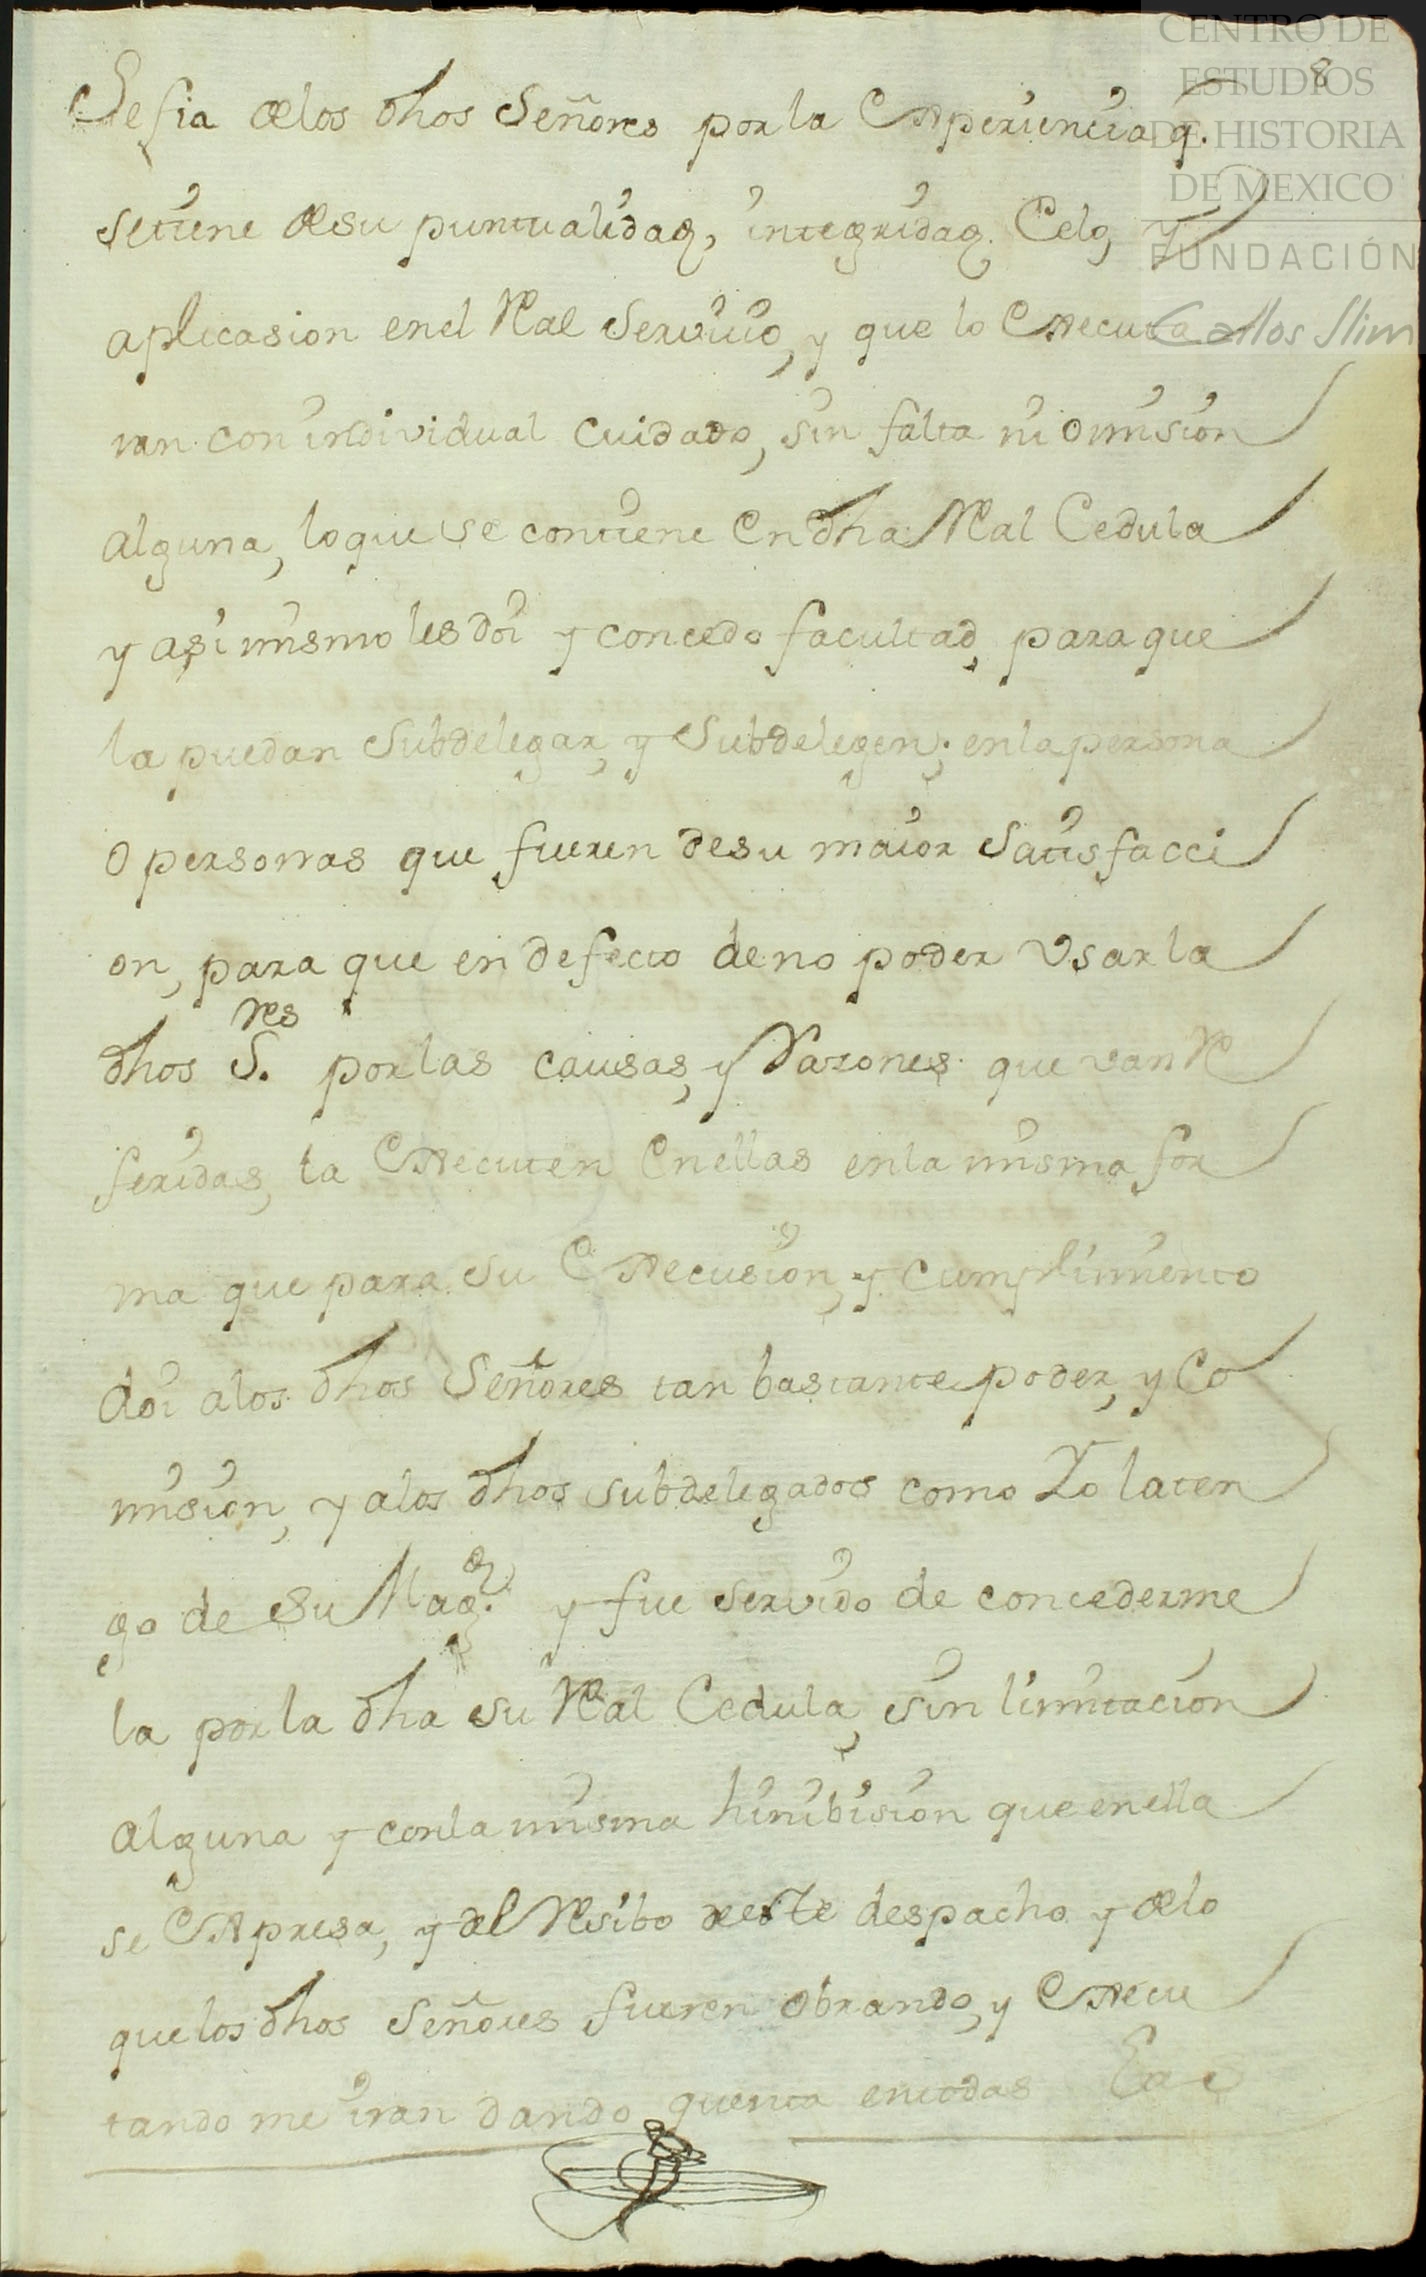 CENTRO DE
ESTUDIOS
DE HISTORIA
DE MEXICO
FUNDACIÓN
Carlos Slim
8
Se fia delos dhos Señores por la Experiencia q.
setiene desu puntualidad, integridad. Celo, y
aplicasion enel Real Servicio, y que lo Executa
ran con individual cuidado, sin falta ni omision
alguna, loque se contiene En dha Real Cedula
y asi mismo les doi y concedo facultad, paraque
la puedan Subdelegar, y Subdelegen; enlapersona
O personas que fueren desu maior Satisfacci
on, para que en defecto de no poder Vsarla
dhos S.res por las causas, y Razones que van Re
feridas, la Executen Enellas enla misma for
ma que para su Execusion, y cumplimiento
doi alos dhos Señores tan bastante poder, y Co
mision, y alos dhos subdelegados como Yo laten
go de Su Magd. y fue servido de concederme
la por la dha su Real Cedula, sin limitacion
alguna y conla misma hinibision que enella
se Expresa, y del Resibo deste despacho y delo
quelos dhos Señores fueren obrando, y Execu
tando me iran dando quenta entodas